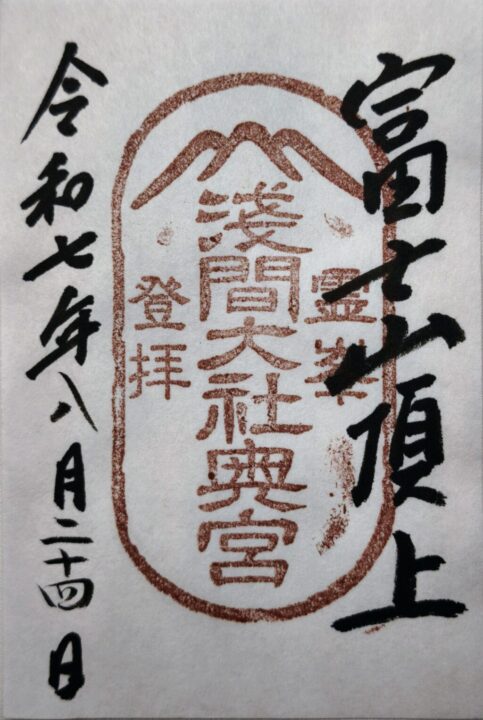 富士山頂上
霊峯
浅間大社奥宮
登拝
令和七年八月二十四日